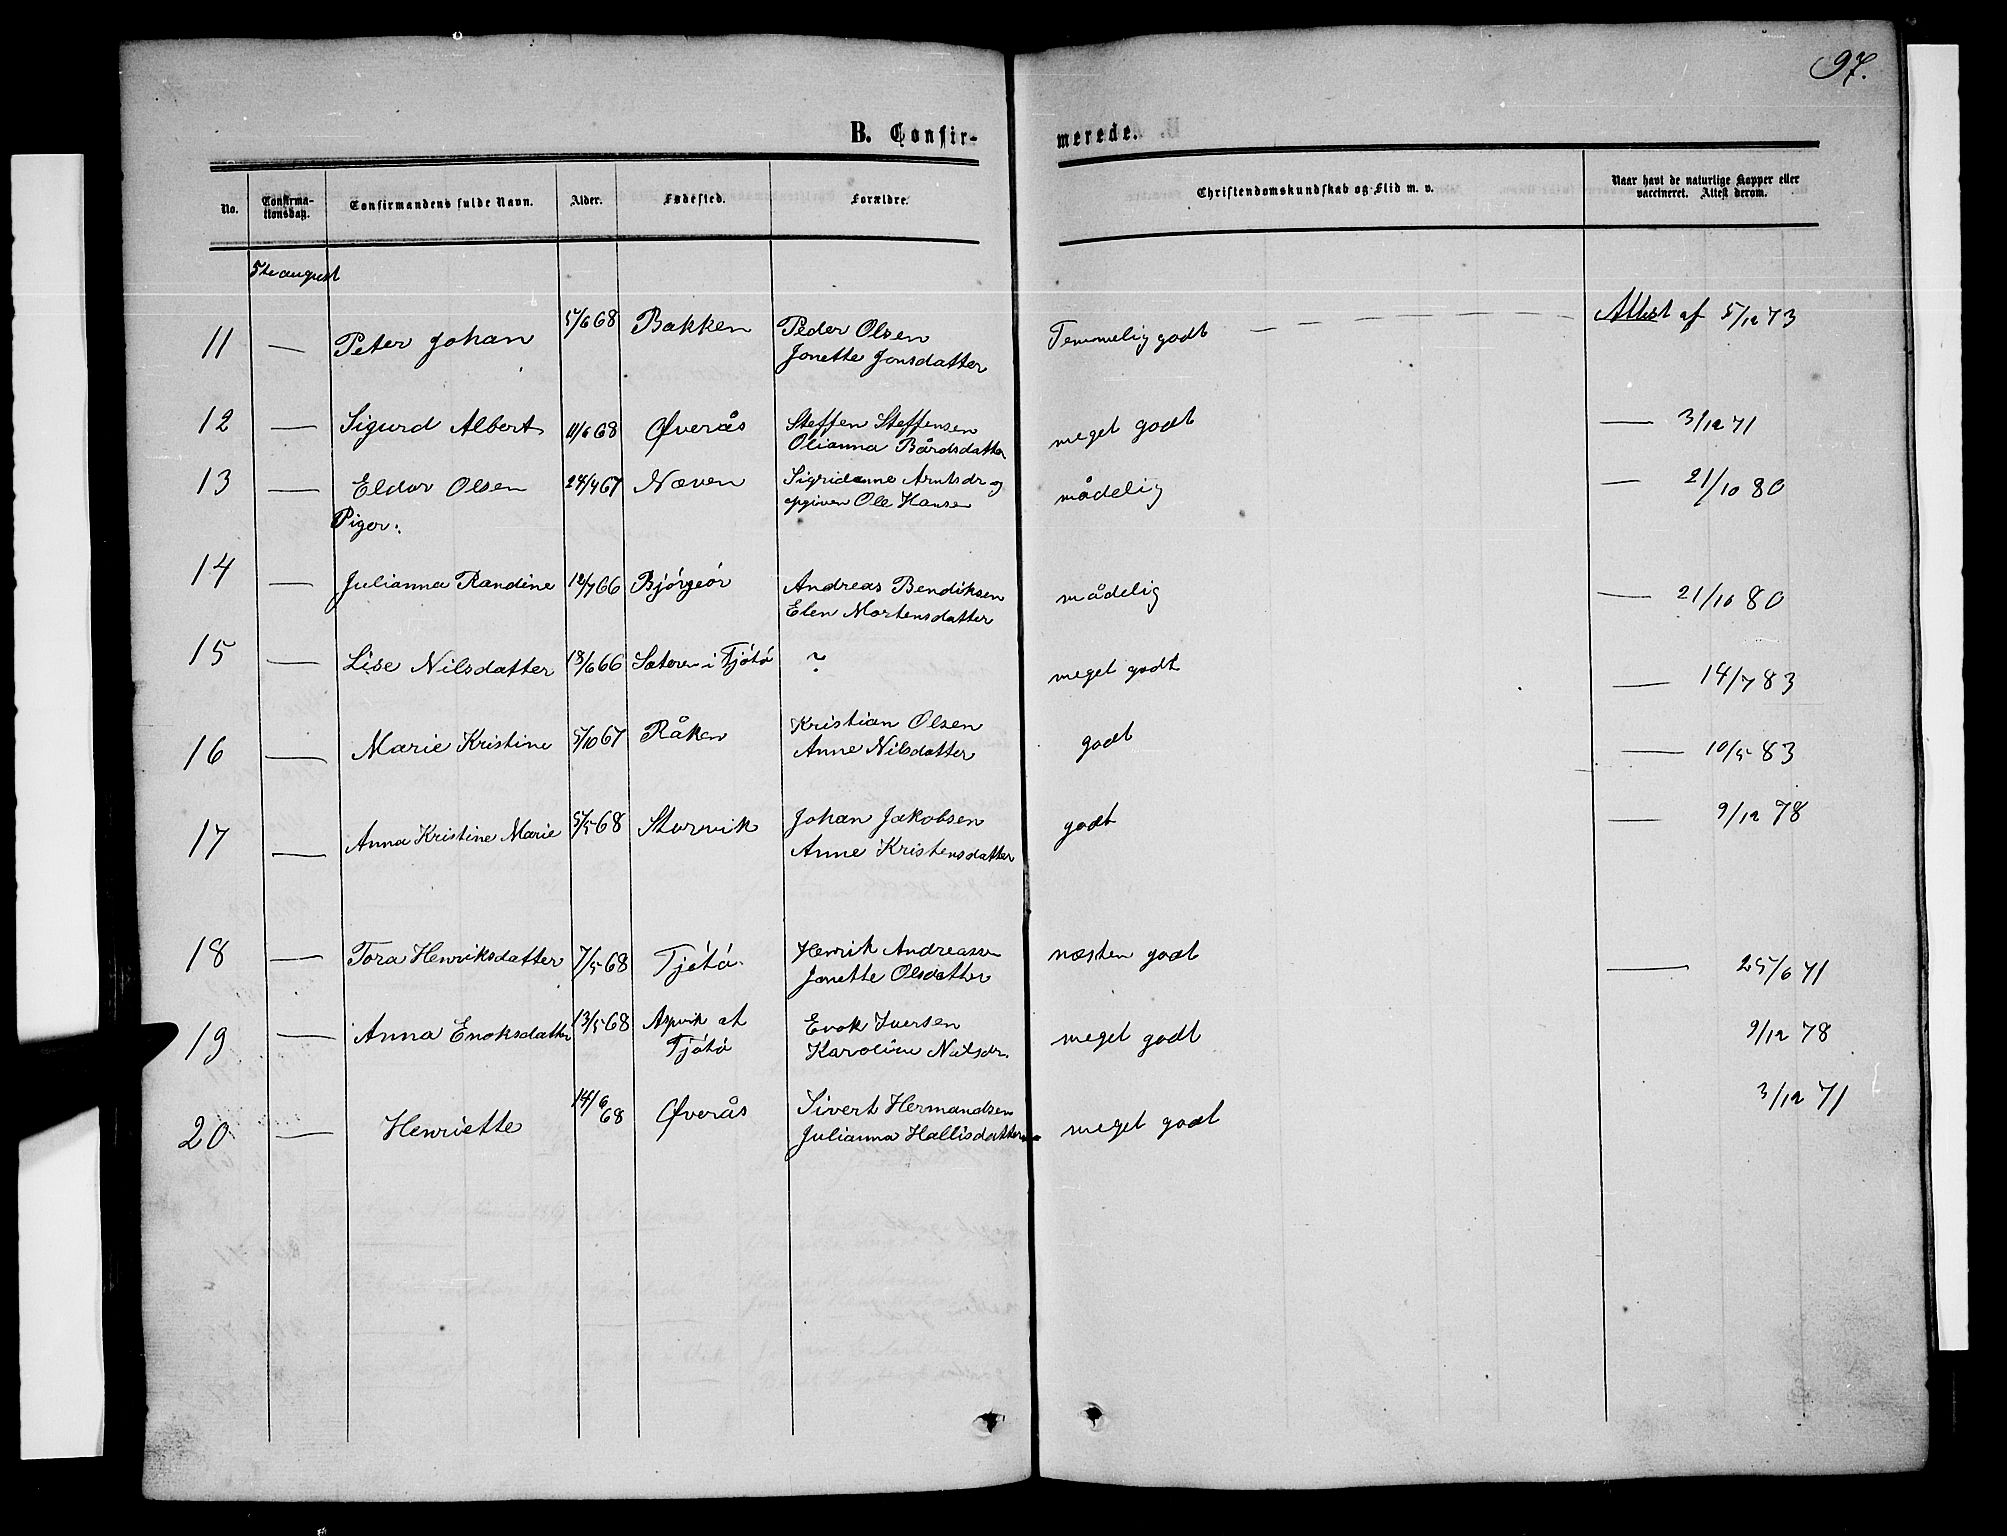 97.
B. Confir-
merede.
No.
Confirma-
tionsdag.
Confirmandens fulde Navn.
Alder.
Fødested.
Forældre.
Christendomskundskab og Flid m. v.
Naar havt de naturlige Kopper eller
vaccineret. Attest derom.
5te august
11 — Peter Johan 5/6 68 Bakken Peder Olsen Temmelig godt — — — — — — — Attest af 5/12 73
Jonette Jonsdatter
12 — Sigurd Albert 11/6 68 Øverås Steffen Steffensen meget godt — 3/12 71
Olianna Bårdsdatter
13 — Eldor Olsen 24/4 67 Næven Sigridanne Arntsdr og mådelig — 21/10 80
opgiven Ole Hansen
Piger:
14 — Julianna Randine 12/7 66 Bjørgeør Andreas Bendiksen mådelig — 21/10 80
Elen Mortensdatter
15 — Lise Nilsdatter 18/6 66 i Tjøtø ? meget godt — 14/7 83
16 — Marie Kristine 5/10 67 Råken Kristian Olsen godt — 10/5 83
Anne Nilsdatter
17 — Anna Kristine Marie 5/5 68 Storvik Johan Jakobsen godt — 9/12 78
Anne Kristensdatter
18 — Tora Henriksdatter 7/5 68 Tjøtø Henrik Andreassen næsten godt — 25/6 71
Jonette Olsdatter
19 — Anna Enoksdatter 13/5 68 Aspvik at Enok Iversen meget godt 9/12 78
Tjøtø Karoline Nilsdr.
20 — Henriette 14/6 68 Øverås Sivert Hermandsen meget godt 3/12 71
Julianna Hallisdatter